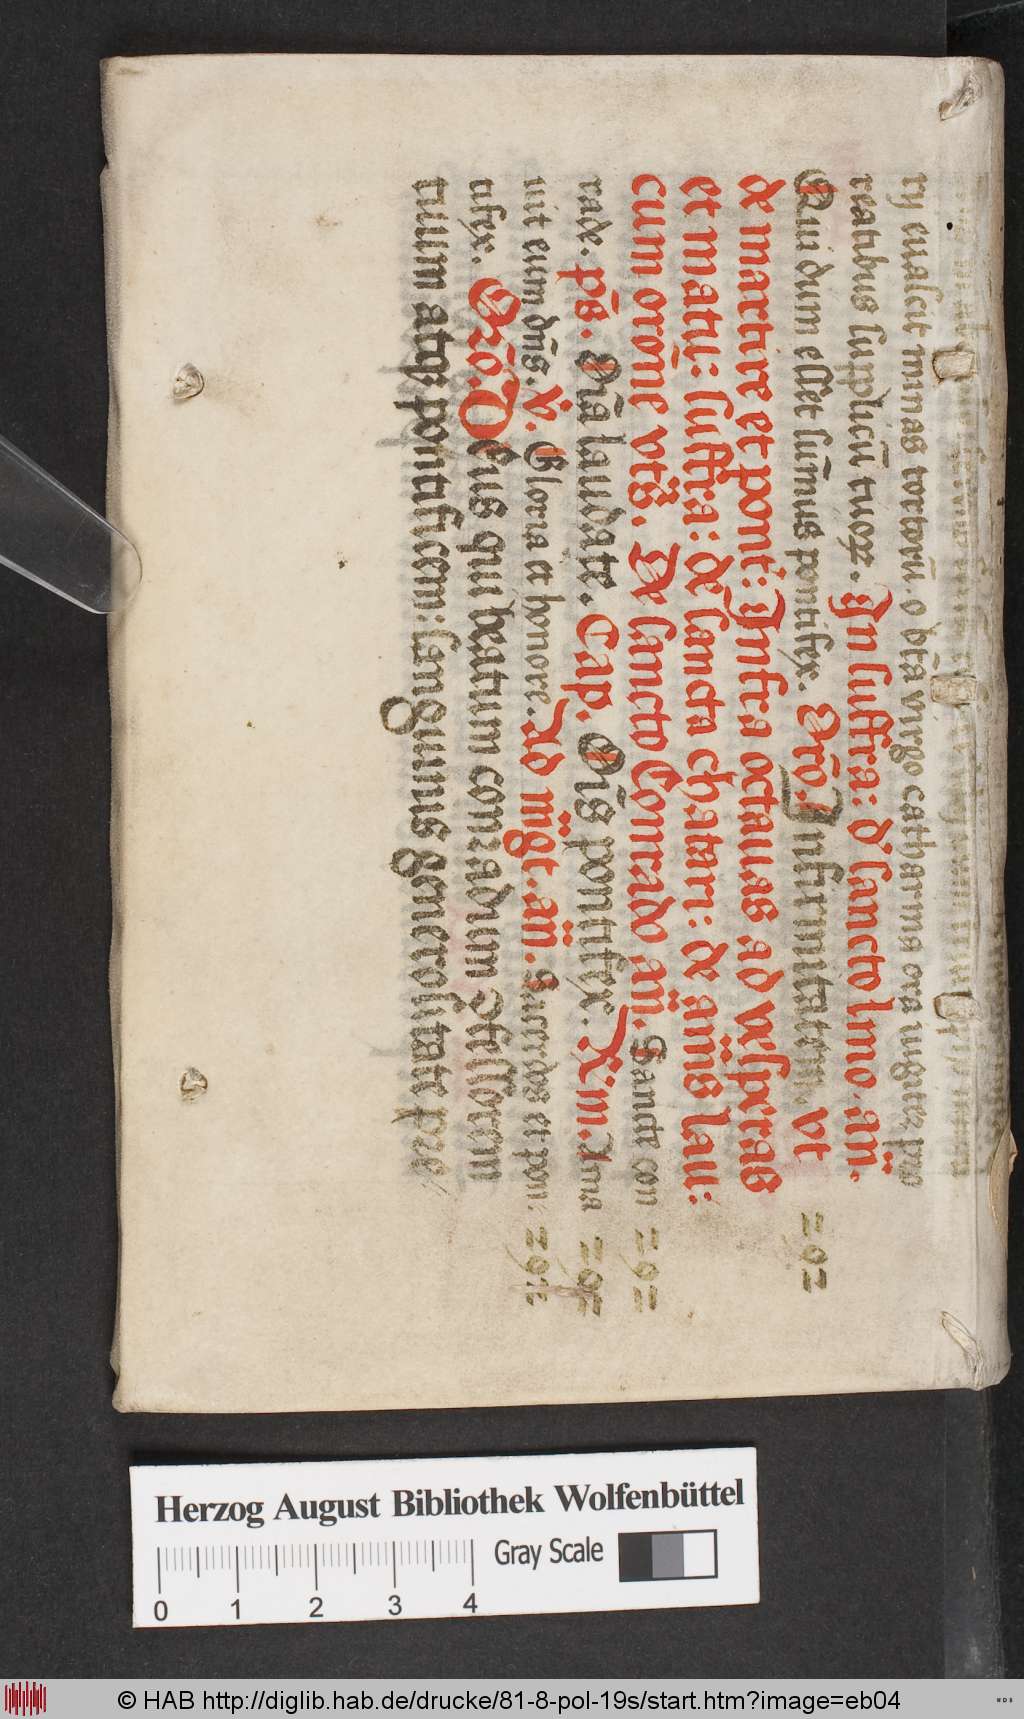 ry eualeit minas tortorū. o bt̄a virgo catharina ora iugiter pro
reatibus supplicū tuoꝝ. In suffra: d' sancto Imo. añ.
Qui dum esset sum̄us pontifex. Orõ. Infirmitatem. vt
de martire et pont: Infra octauas ad vesperas
et matū: suffra: de sancta chatarī: de aīīs lau:
cum orōne vts̄. De sancto Conrado añ. Sancte con
rade. ps̄. Oīā laudate. Cap. Oīs pontifex. Xim. Ama
uit eum dn̄s. v̄. Gloria et honore. ad mg̅t. añ. Sacerdos et pon:
tifex. Orõ. Deus qui beatum conradum ꝯfessorem
tuum atqꝫ pontificem: sanguinis generositate pre
Herzog August Bibliothek Wolfenbüttel
Gray Scale
0 1 2 3 4
© HAB http://diglib.hab.de/drucke/81-8-pol-19s/start.htm?image=eb04